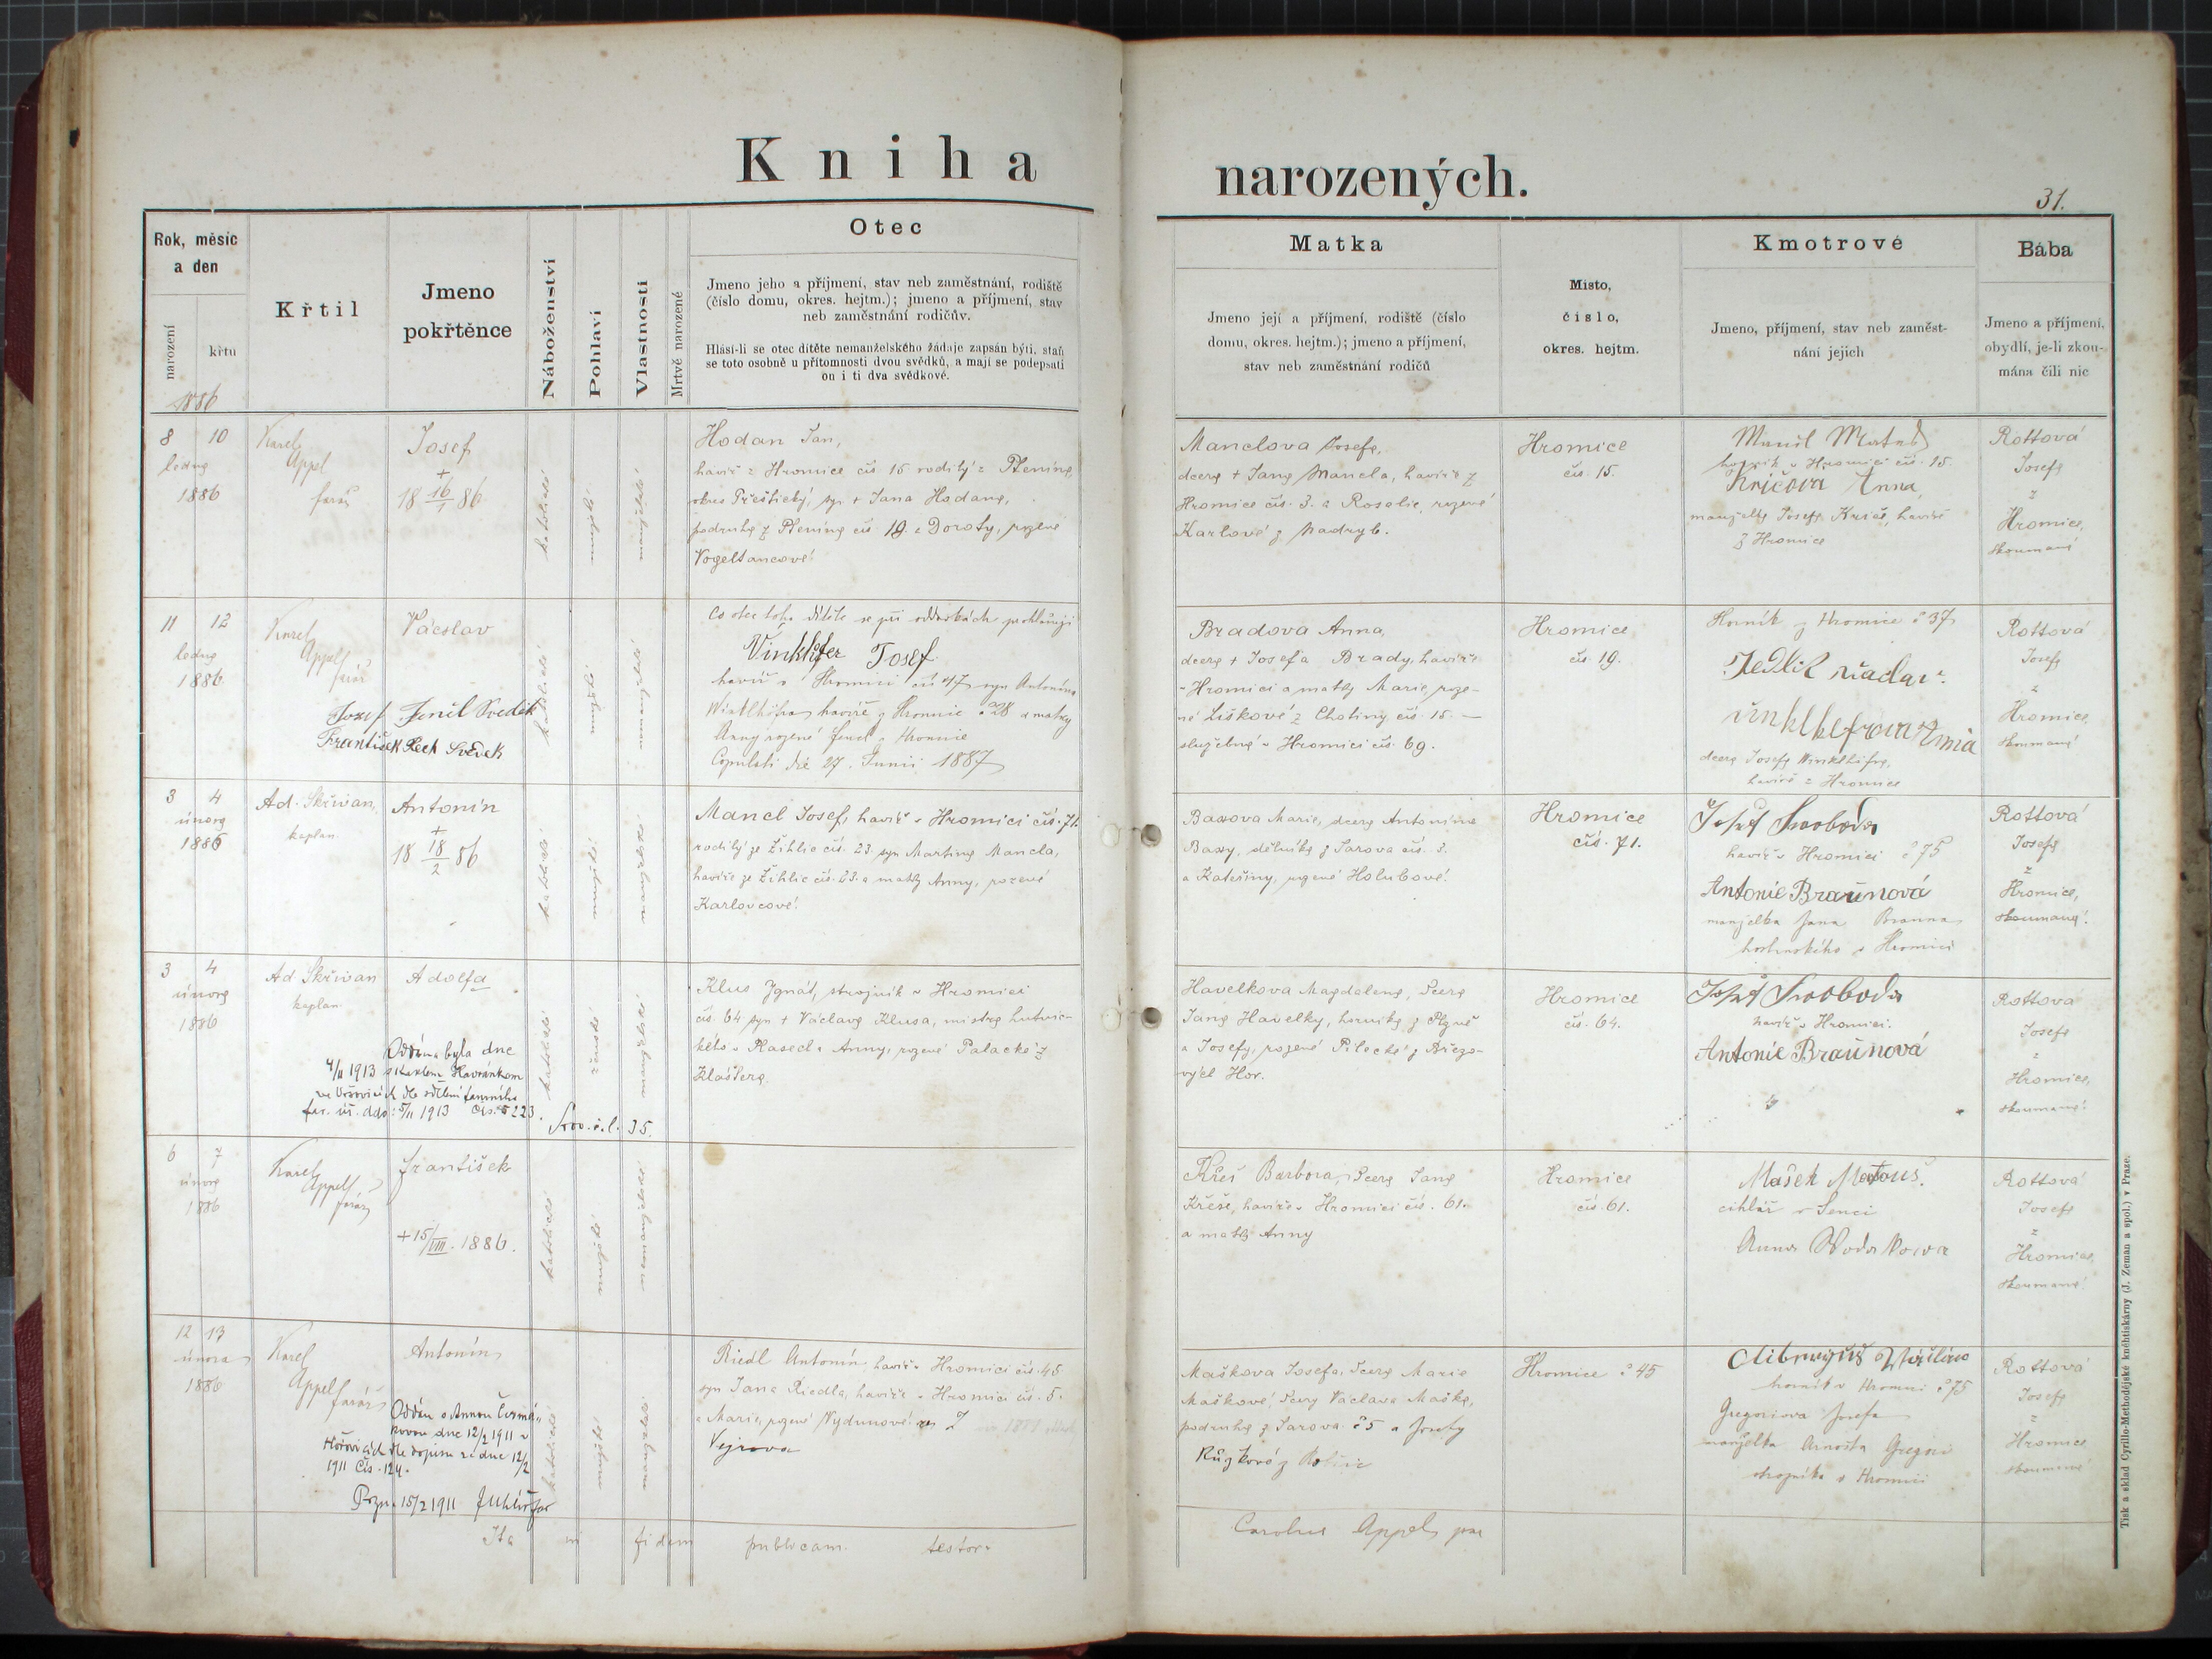 Kniha narozených.
31.
Rok, měsíc
a den
narození
křtu
1886
Křtil
Jmeno
pokřtěnce
Náboženství
Pohlaví
Vlastnosti
Mrtvě narozené
Otec
Jmeno jeho a příjmení, stav neb zaměstnání, rodiště
(číslo domu, okres. hejtm.); jmeno a příjmení, stav
neb zaměstnání rodičův.
Hlásí-li se otec dítěte nemanželského žádaje zapsán býti, staň
se toto osobně u přítomnosti dvou svědků, a mají se podepsati
on i ti dva svědkové.
Matka
Jmeno její a příjmení, rodiště (číslo
domu, okres. hejtm.); jmeno a příjmení,
stav neb zaměstnání rodičů
Místo,
číslo,
okres. hejtm.
Kmotrové
Jmeno, příjmení, stav neb zaměst-
nání jejich
Bába
Jmeno a příjmení,
obydlí, je-li zkou-
mána čili nic
8 10
ledna
1886
Karel
Appl
farář
Josef
+
18 16/1 86
katolické
mužské
manželské
Hodan Jan,
havíř z Hromice čís 15 rodilý z Ptenína,
okres Přeštický, syn + Jana Hodana,
podruha z Ptenína čís 19. a Doroty, rozené
Vogeltancové
Manclova Josefa,
dcera + Jana Mancla, havíře z
Hromice čís. 3. a Rosalie, rozené
Karlové z Nadryb.
Hromice
čís. 15.
horník v Hromici čís. 15.
Kričova Anna
manželka Josefa Kriče, havíře
z Hromice
Rottová
Josefa
z
Hromice,
zkoumaná
11 12
ledna
1886
Karel
Appel
farář
Václav
Josef Jencl Svedek
František Svědek
katolické
mužské
Co otec toho dítěte se při oddavkách prohlašuji
Vinklhöfer Josef
havíř v Hromici čís 47 syn Antonína
Winklhöfra havíře z Hromice č. 28 a matky
Anny rozené Jencl z Hromice
Copulati die 27. Junii 1887
Bradova Anna,
dcera + Josefa Brady, havíře
v Hromici a matky Marie, roze-
né Liškové z Chotiny čís. 15. —
služebná v Hromici čís. 69.
Hromice
čís. 19.
Horník z Hromice č 37
dcera Josefa Winklhöfra,
havíře z Hromice
Rottová
Josefa
z
Hromice,
zkoumaná
3 4
února
1886
Ad. Skřivan,
kaplan.
Antonín
+
18 18/2 86
katolické
mužské
manželské
Mancl Josef, havíř v Hromici čís. 71.
rodilý ze Žihlic čís. 23 syn Martina Mancla,
havíře ze Žihlic čís. 23. a matky Anny, rozené
Karlovcové.
Baxova Marie, dcera Antonína
Baxy, dělníka z Žarova čís. 3.
a Kateřiny, rozené Holubové.
Hromice
čís. 71.
Josef Svoboda
havíř v Hromici č 75
Antonie Braunová
manželka Jana Brauna
hostinského v Hromici
Rottová
Josefa
z
Hromice,
zkoumaná.
3 4
února
1886
Ad Skřivan
kaplan.
Adolfa
Oddána byla dne
4/II 1913 s Karlem Havránkem
ve Vršovicích dle sdělení
far. úř. ddo: 5/II 1913 Čís. 5223.
Srov. č. l. 35.
katolické
ženské
manželské
Klus Ignát, strojník v Hromici
čís. 64 syn + Václava Klusa, mistra
v Plasech a Anny, rozené Palacké z
Kláštera.
Havelkova Magdalena, dcera
Jana Havelky, horníka z Plzně
a Josefy, rozené Pilecké z Březo-
vých Hor.
Hromice
čís. 64.
Josef Svoboda
havíř v Hromici.
Antonie Braunová
Rottová
Josefa
z
Hromice,
zkoumaná.
6 7
února
1886
Karel
Appel
farář
František
+ 15/VIII. 1886.
katolické
mužské
nemanželské
Křeš Barbora, dcera Jana
Křeše, havíře v Hromici čís. 61.
a matky Anny
Hromice
čís. 61.
Mašek Matouš.
cihlář v Senci
Anna
Rottová
Josefa
z
Hromice,
zkoumaná
12 13
února
1886
Karel
Appel
farář
Antonín
Oddán s Annou
kovou dne 12/2 1911 v
Hořovicích dle dopisu ze dne 12/2
1911 Čís. 124.
Pozn. 15/2 1911
katolické
mužské
manželské
Riedl Antonín, havíř v Hromici čís. 45
syn Jana Riedla, havíře v Hromici čís. 5.
a Marie, rozené Nydrunové z
Vejrova
Maškova Josefa, dcera Marie
Maškové, dcery Václava Maška,
podruha z Žarova č 5 a Josefy
Růžkové z
Hromice č 45
horník v Hromici č 75
Gregoriova Josefa
manželka Arnošta Gregori
strojníka v Hromici
Rottová
Josefa
z
Hromice
zkoumaná
Ita in fidem publicam testor.
Carolus Appel
Tisk a sklad Cyrillo-Methodějské kněhtiskárny (J. Zeman a spol.) v Praze.